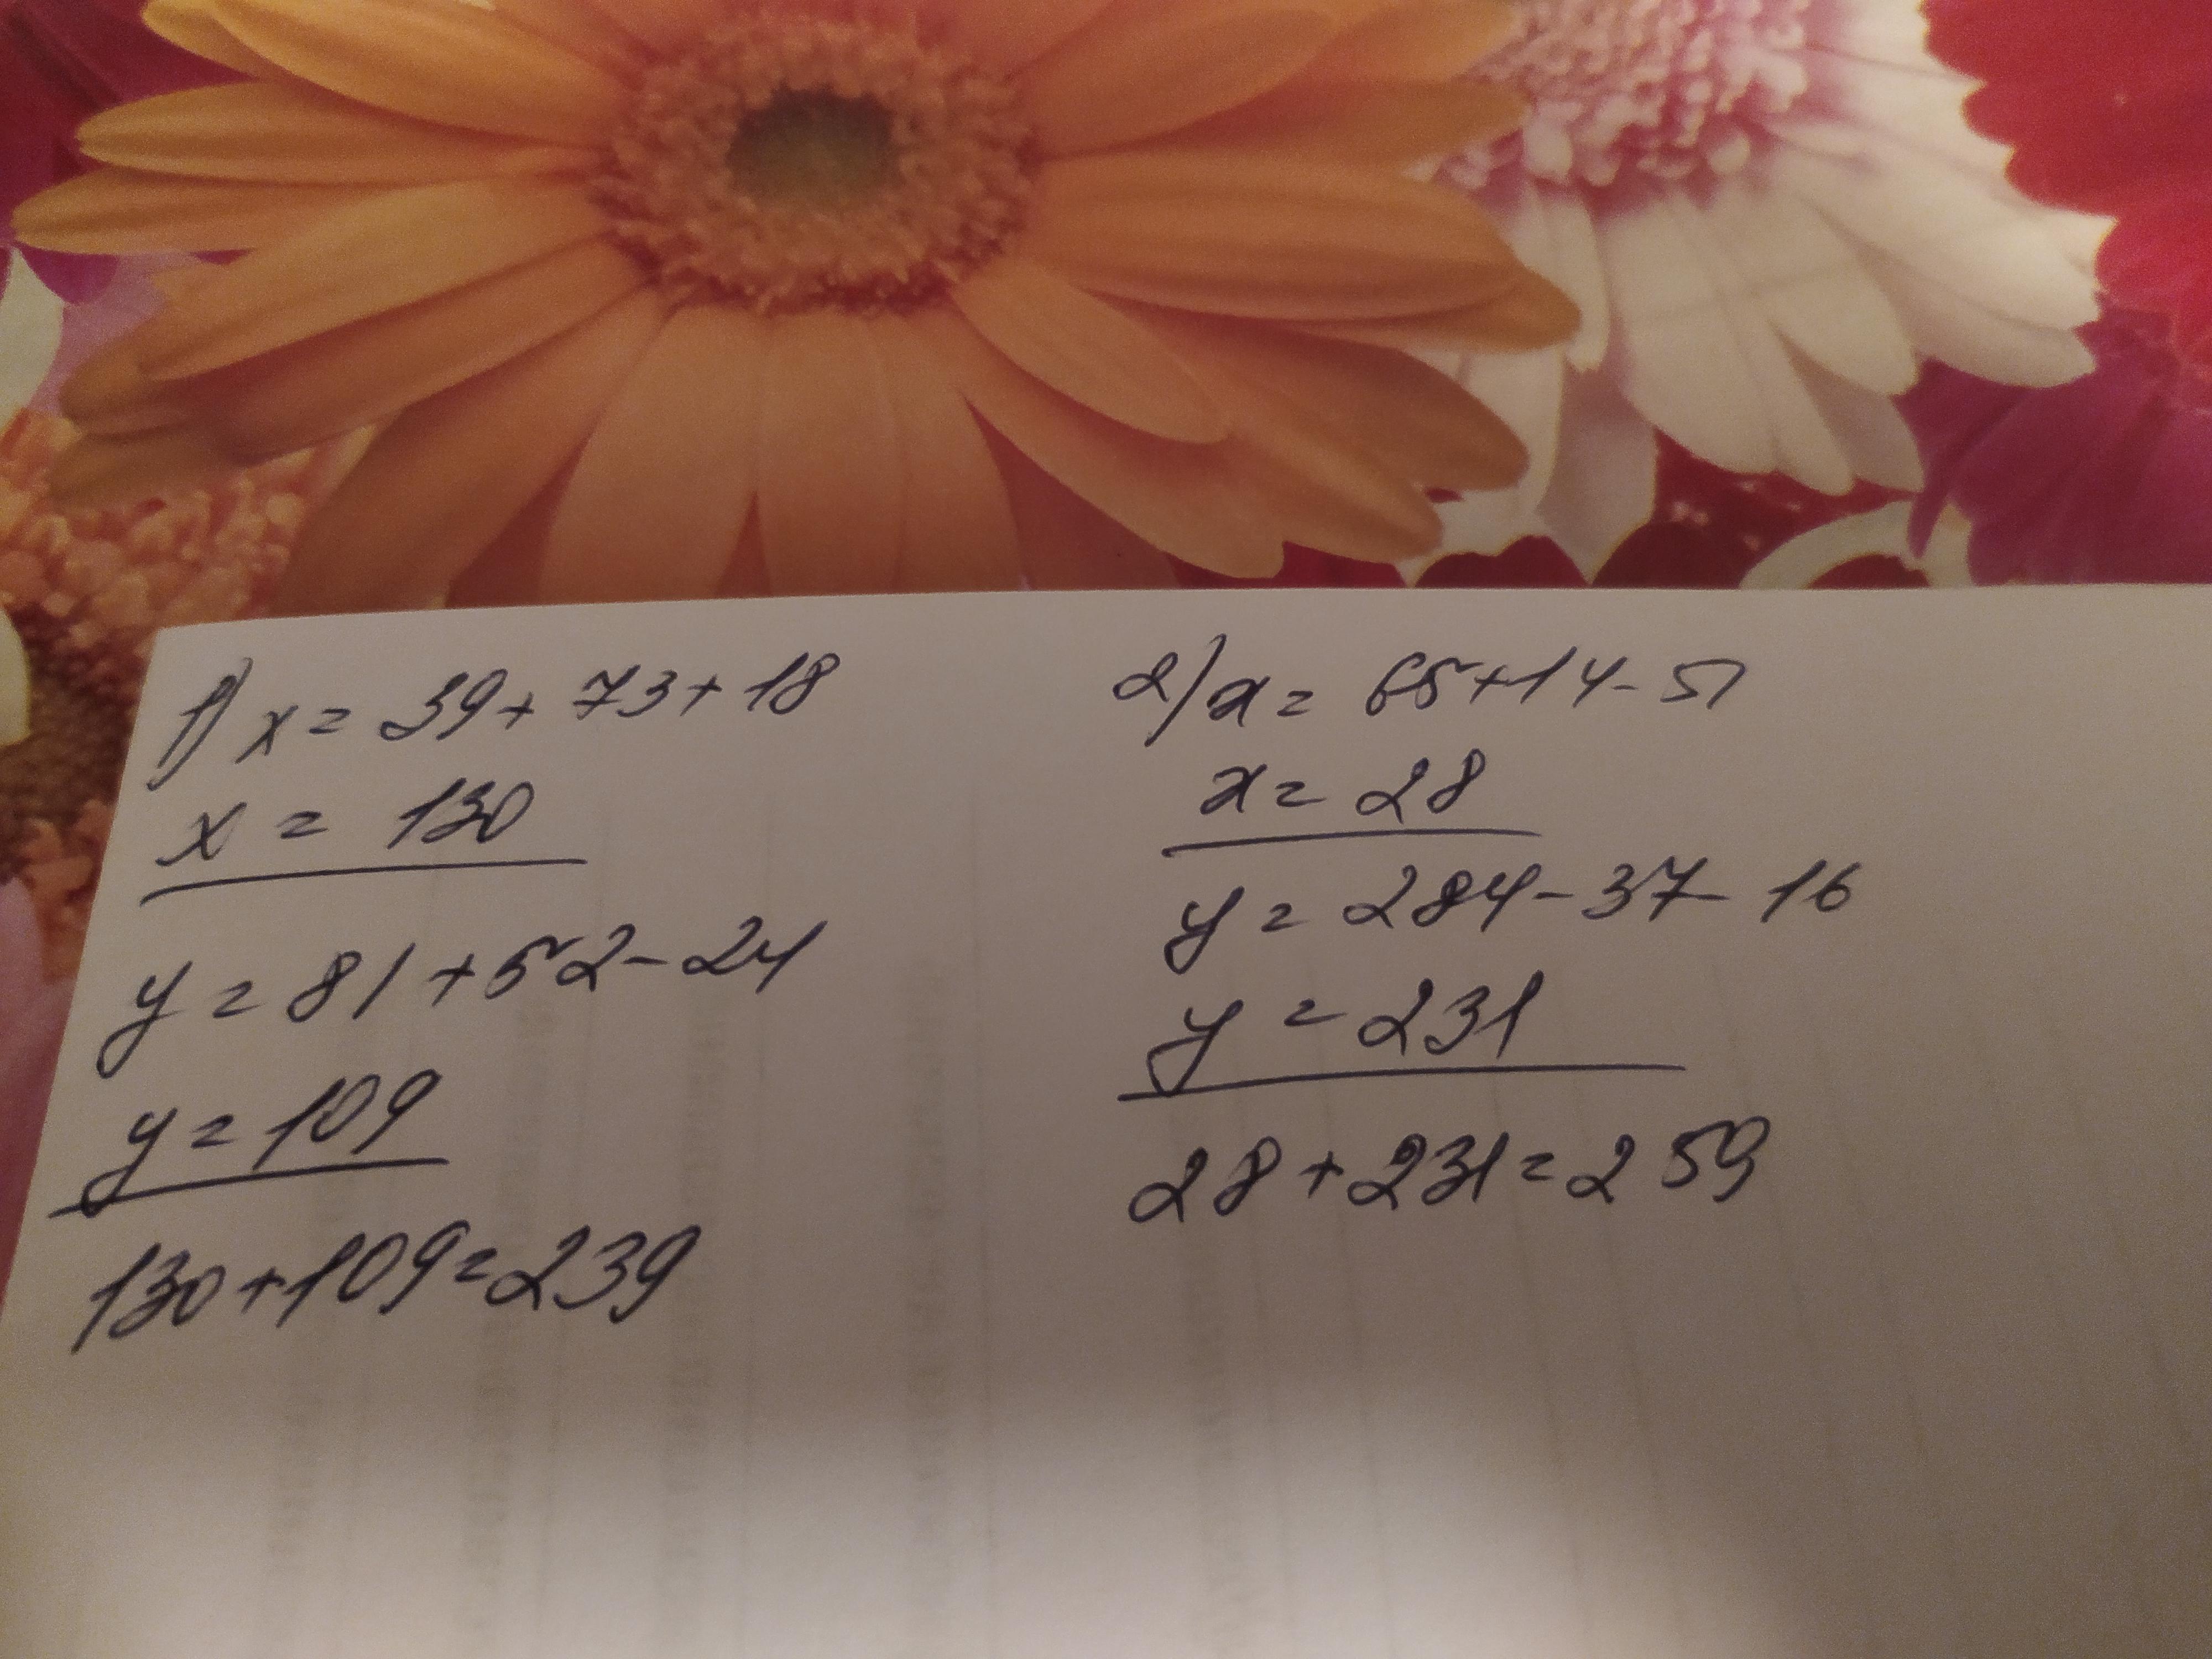 1) x = 39 + 73 + 18
x = 130
y = 81 + 52 - 24
y = 109
130 + 109 = 239
2) x = 65 + 14 - 51
x = 28
y = 284 - 37 - 16
y = 231
28 + 231 = 259